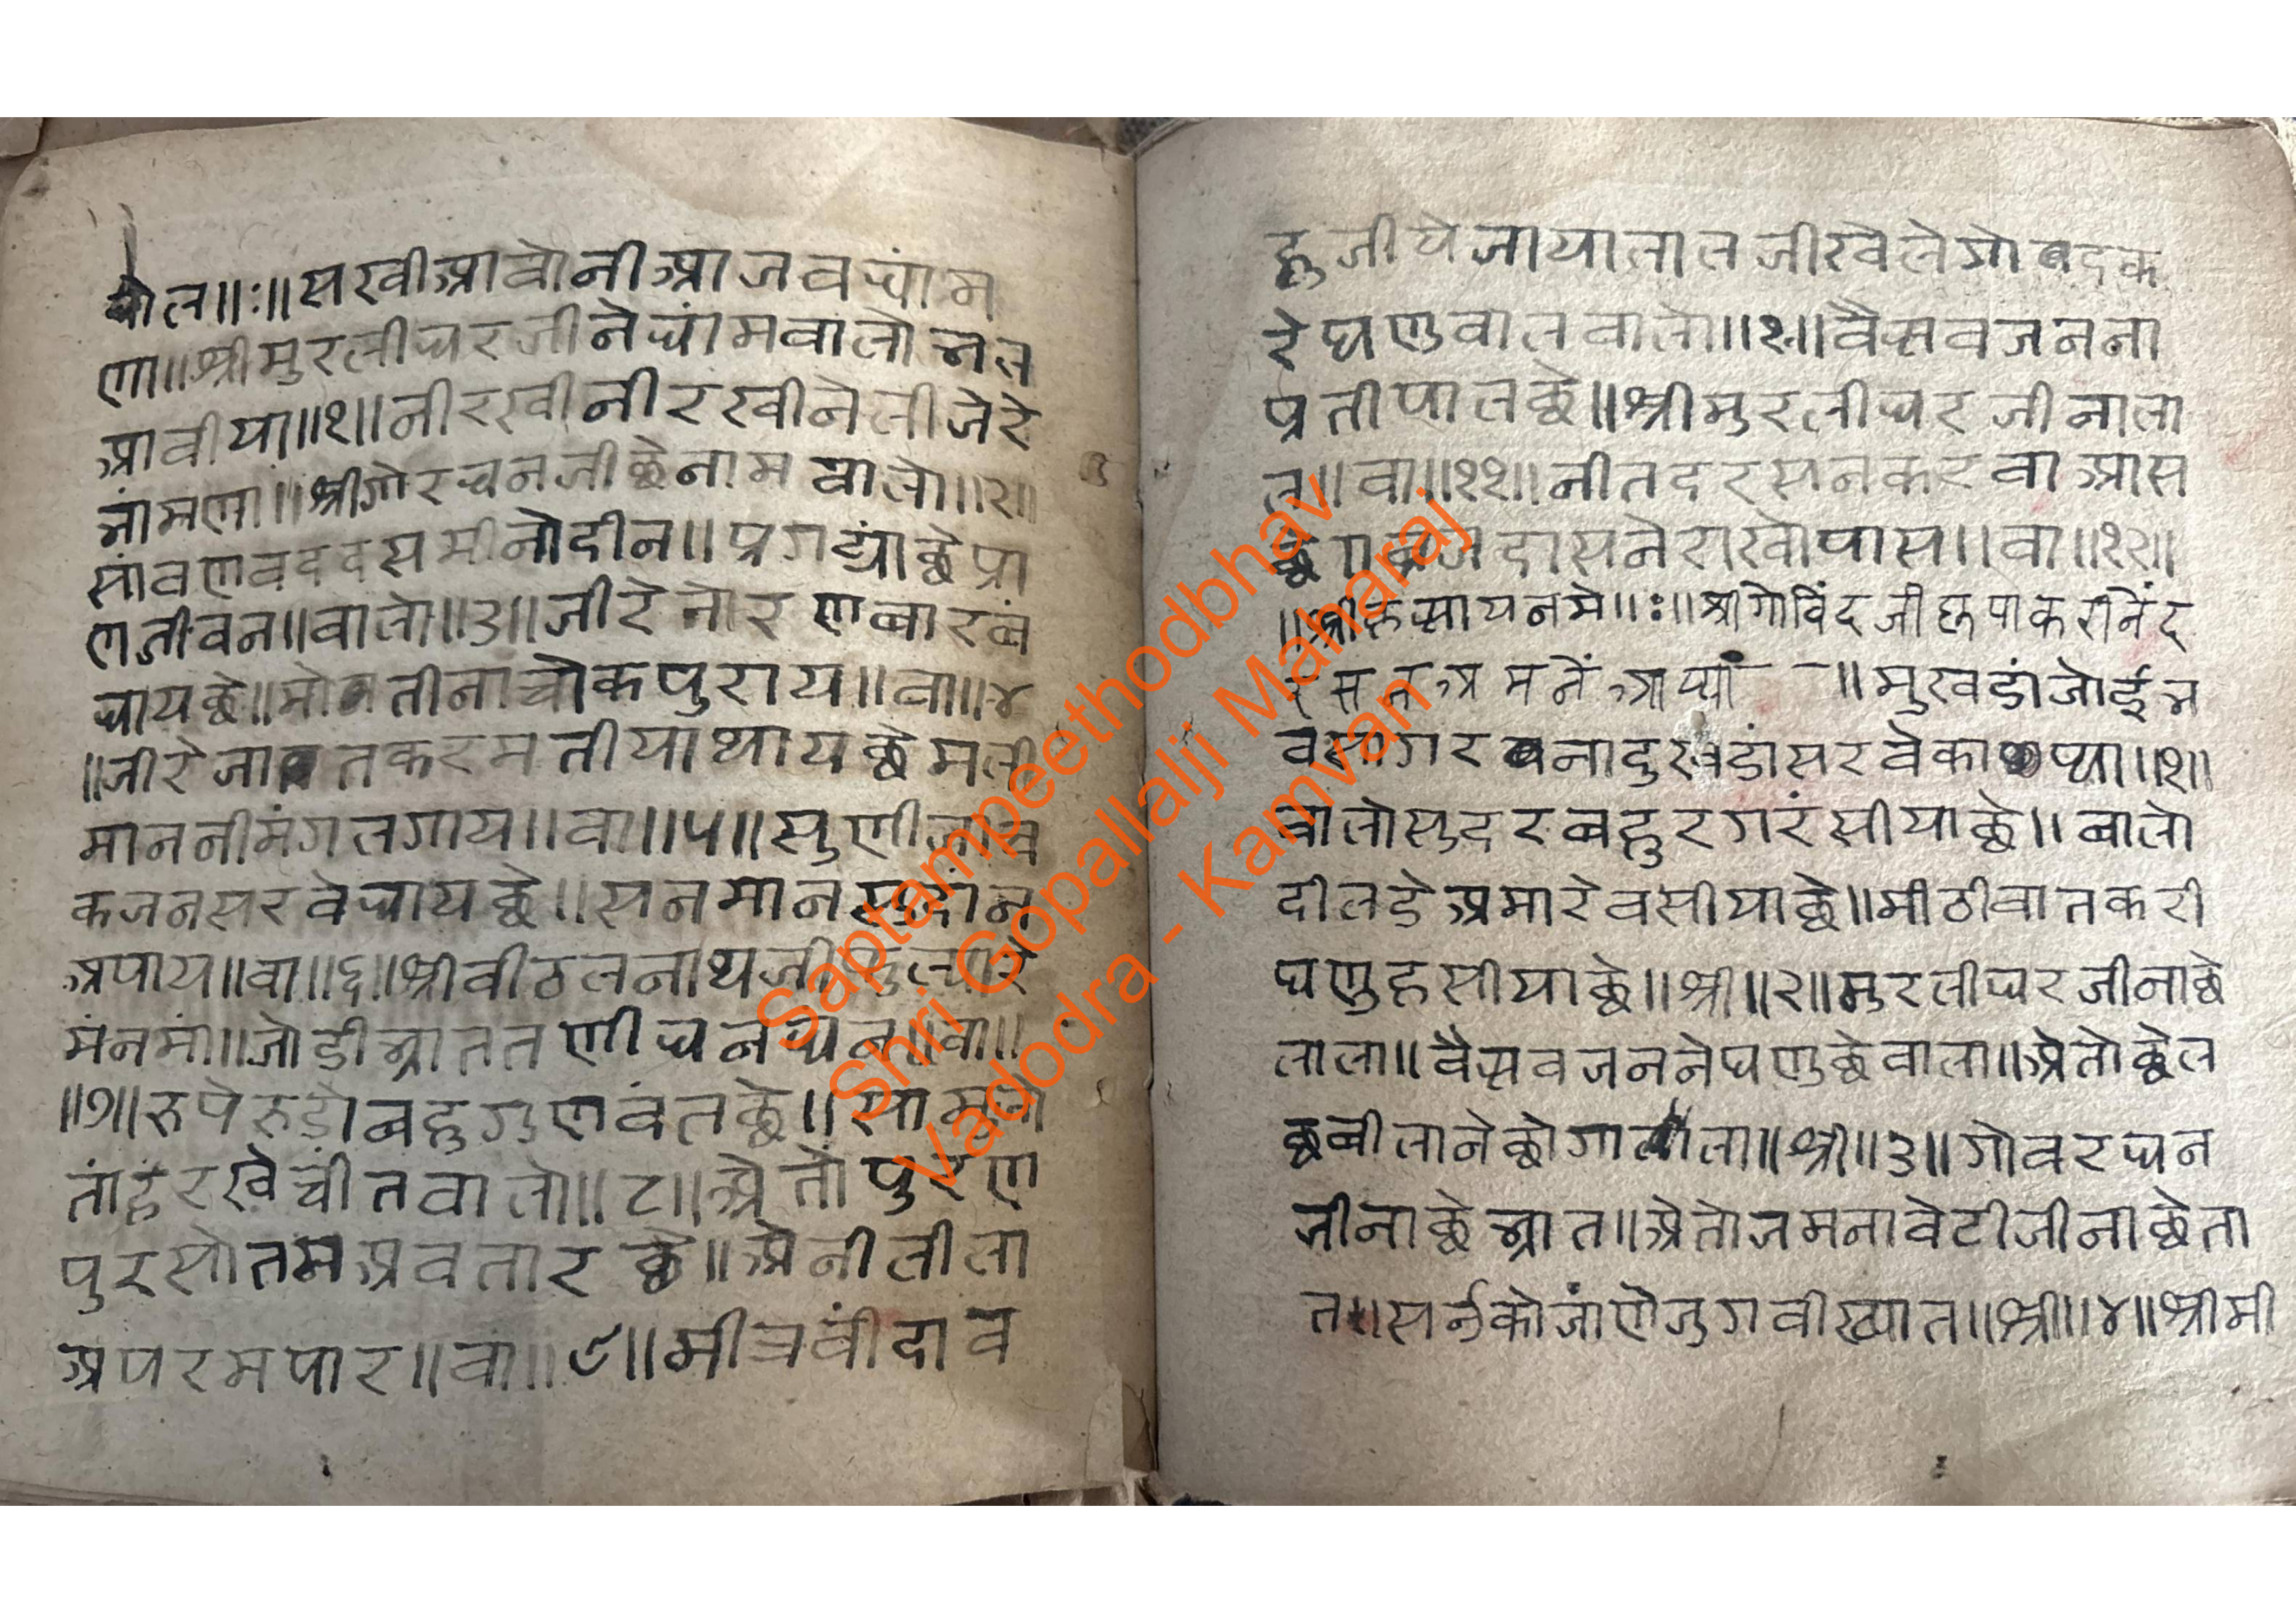 घोल॥ः॥सखीआवोनीआजवघांम
णा॥श्रीमुरलीधरजीनेघांमवालोभल
आवीया॥१॥नीरखीनीरखीनेलीजेरे
भांमणा॥श्रीगोरधनजीछेनाम वालो॥२॥
सांवणवददसमीनोदीन॥प्रगट्यांछेप्रा
णजीवन॥वालो॥३॥जीरेतोरणबारबं
धायछे॥मोतीनाचोकपुराय॥वा॥४
॥जीरेजातकरमतीयाथायछेमली
माननीमंगलगाय॥वा॥५॥सुणीजाच
कजनसरवेधायछे॥सनमानसुदांन
अपाय॥वा॥६॥श्रीवीठलनाथजी
मंनमां॥जोडीभ्राततणीधनधन॥वा॥
॥७॥रुपेरुडोबहुगुणवंतछे॥सामलो
तांहरखेचींतवालो॥८॥अेतोपुरण
पुरसोतमअवतारछे॥अेनीलीला
अपरमपार॥वा॥९॥मीत्रवींदाव
हुजीयेजायालालजीखेलेगोवदक
रेघणुवालवालो॥१०॥वैस्नवजनना
प्रतीपालछे॥श्रीमुरलीधरजीनाला
ल॥वा॥११॥नीतदरसनकरवाआस
छेगोव्रजदासनेराखोपास॥वा॥१२॥
॥श्रीक्रस्नायनमे॥ः॥श्रीगोविंदजीक्रपाकरीनेंद
रसनअमनेंआप्यां॥मुखडांजोईभ
वसागरनादुखडांसरवेकाप्या॥१॥
वालोसुदरबहुरगरंसीयाछे॥वालो
दीलडेअमारेवसीयाछे॥मीठीवातकरी
घणुहसीयाछे॥श्री॥२॥मुरलीधरजीनाछे
लाला॥वैस्नवजननेघणुछेवाला॥अेतोछेल
छबीलानेछोगाला॥श्री॥३॥गोवरधन
जीनाछेभ्रात॥अेतोजमनावेटीजीनाछेता
त॥सर्नुकोजांणेजुगवीख्यात॥श्री॥४॥श्रीमी
Saptampeethodbhav
Shri Gopallalji Maharaj
Vadodra - Kamvan